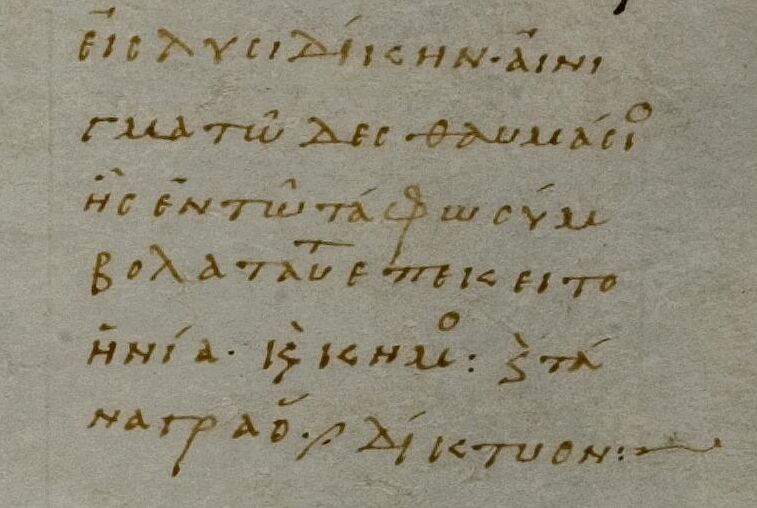 εἰς λυσιδίκην· αἰνι
γματῶδες θαυμάσιο
ἧς ἐν τῶ τάφω σύμ
βολα ταῦτ επεκειτο
ἡνία· κϛ̀ κημο: ϛ̀ τά
ναγραο· δίκτυον:~